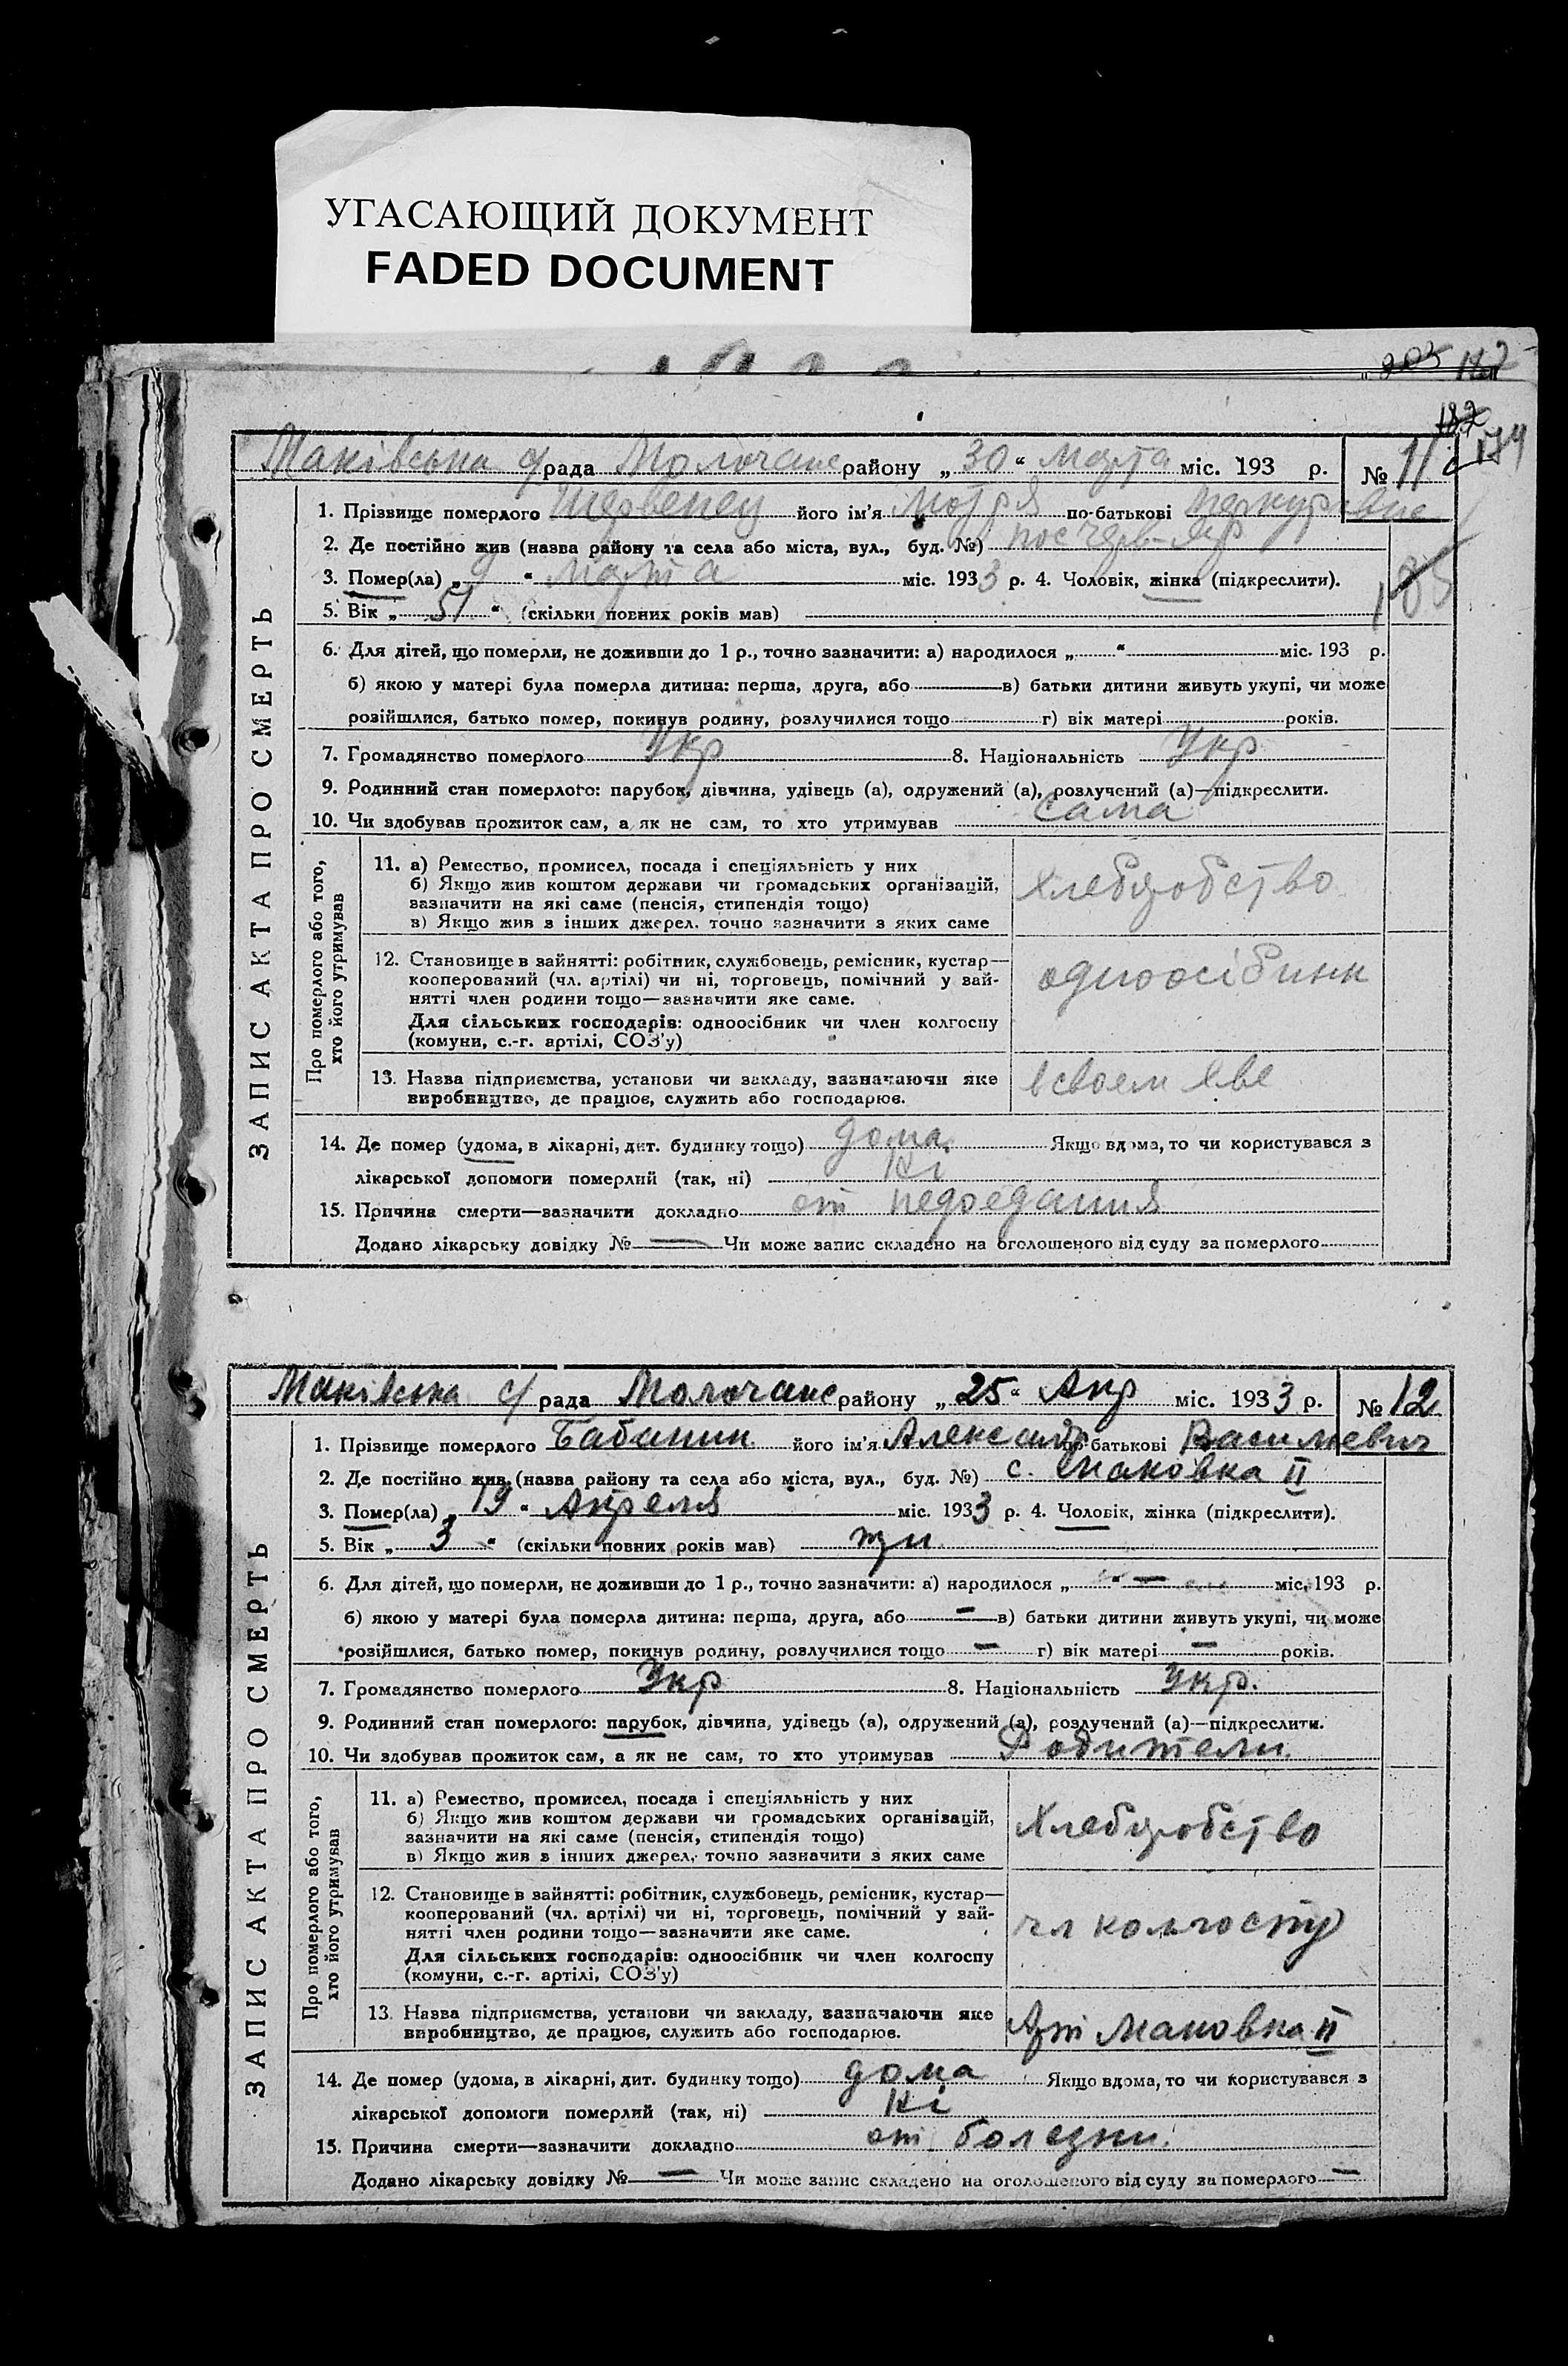 УГАСАЮЩИЙ ДОКУМЕНТ
FADED DOCUMENT
Маківська с/рада Молочанс району „30“ марта міс. 193 р. № 11
ЗАПИС АКТА ПРО СМЕРТЬ
1. Прізвище померлого його ім'я Мотря по-батькові
2. Де постійно жив (назва району та села або міста, вул., буд. №) пос
3. Помер(ла) „9“ марта міс. 1933 р. 4. Чоловік, жінка (підкреслити).
5. Вік „51“ (скільки повних років мав)
6. Для дітей, що померли, не доживши до 1 р., точно зазначити: а) народилося „ “ міс. 193 р.
б) якою у матері була померла дитина: перша, друга, або — в) батьки дитини живуть укупі, чи може
розійшлися, батько помер, покинув родину, розлучилися тощо г) вік матері років.
7. Громадянство померлого Укр 8. Національність Укр
9. Родинний стан померлого: парубок, дівчина, удівець (а), одружений (а), розлучений (а)—підкреслити.
10. Чи здобував прожиток сам, а як не сам, то хто утримував сама
Про померлого або того, хто його утримував
11. а) Ремество, промисел, посада і спеціяльність у них
б) Якщо жив коштом держави чи громадських організацій,
зазначити на які саме (пенсія, стипендія тощо)
в) Якщо жив з інших джерел, точно зазначити з яких саме
хлеборобство
12. Становище в зайнятті: робітник, службовець, ремісник, кустар—
кооперований (чл. артілі) чи ні, торговець, помічний у зай-
нятті член родини тощо—зазначити яке саме.
Для сільських господарів: одноосібник чи член колгоспу
(комуни, с.-г. артілі, СОЗ'у)
одноосібник
13. Назва підприємства, установи чи закладу, зазначаючи яке
виробництво, де працює, служить або господарює.
в своем
14. Де помер (удома, в лікарні, дит. будинку тощо) дома Якщо вдома, то чи користувався з
лікарської допомоги померлий (так, ні) Ні
15. Причина смерти—зазначити докладно от недоедания
Додано лікарську довідку № — Чи може запис складено на оголошеного від суду за померлого
Маківська с/рада Молочанс району „25“ Апр міс. 1933 р. № 12
ЗАПИС АКТА ПРО СМЕРТЬ
1. Прізвище померлого Бабанин його ім'я Александр по-батькові Васильевич
2. Де постійно жив (назва району та села або міста, вул., буд. №) с. Маковка II
3. Помер(ла) „19“ Апреля міс. 1933 р. 4. Чоловік, жінка (підкреслити).
5. Вік „3“ (скільки повних років мав) три
6. Для дітей, що померли, не доживши до 1 р., точно зазначити: а) народилося „ “ — міс. 193 р.
б) якою у матері була померла дитина: перша, друга, або — в) батьки дитини живуть укупі, чи може
розійшлися, батько помер, покинув родину, розлучилися тощо — г) вік матері — років.
7. Громадянство померлого Укр 8. Національність Укр.
9. Родинний стан померлого: парубок, дівчина, удівець (а), одружений (а), розлучений (а)—підкреслити.
10. Чи здобував прожиток сам, а як не сам, то хто утримував Родители
Про померлого або того, хто його утримував
11. а) Ремество, промисел, посада і спеціяльність у них
б) Якщо жив коштом держави чи громадських організацій,
зазначити на які саме (пенсія, стипендія тощо)
в) Якщо жив з інших джерел, точно зазначити з яких саме
Хлеборобство
12. Становище в зайнятті: робітник, службовець, ремісник, кустар—
кооперований (чл. артілі) чи ні, торговець, помічний у зай-
нятті член родини тощо—зазначити яке саме.
Для сільських господарів: одноосібник чи член колгоспу
(комуни, с.-г. артілі, СОЗ'у)
чл колгоспу
13. Назва підприємства, установи чи закладу, зазначаючи яке
виробництво, де працює, служить або господарює.
Арт Маковка II
14. Де помер (удома, в лікарні, дит. будинку тощо) дома Якщо вдома, то чи користувався з
лікарської допомоги померлий (так, ні) Ні
15. Причина смерти—зазначити докладно от болезни.
Додано лікарську довідку № — Чи може запис складено на оголошеного від суду за померлого —